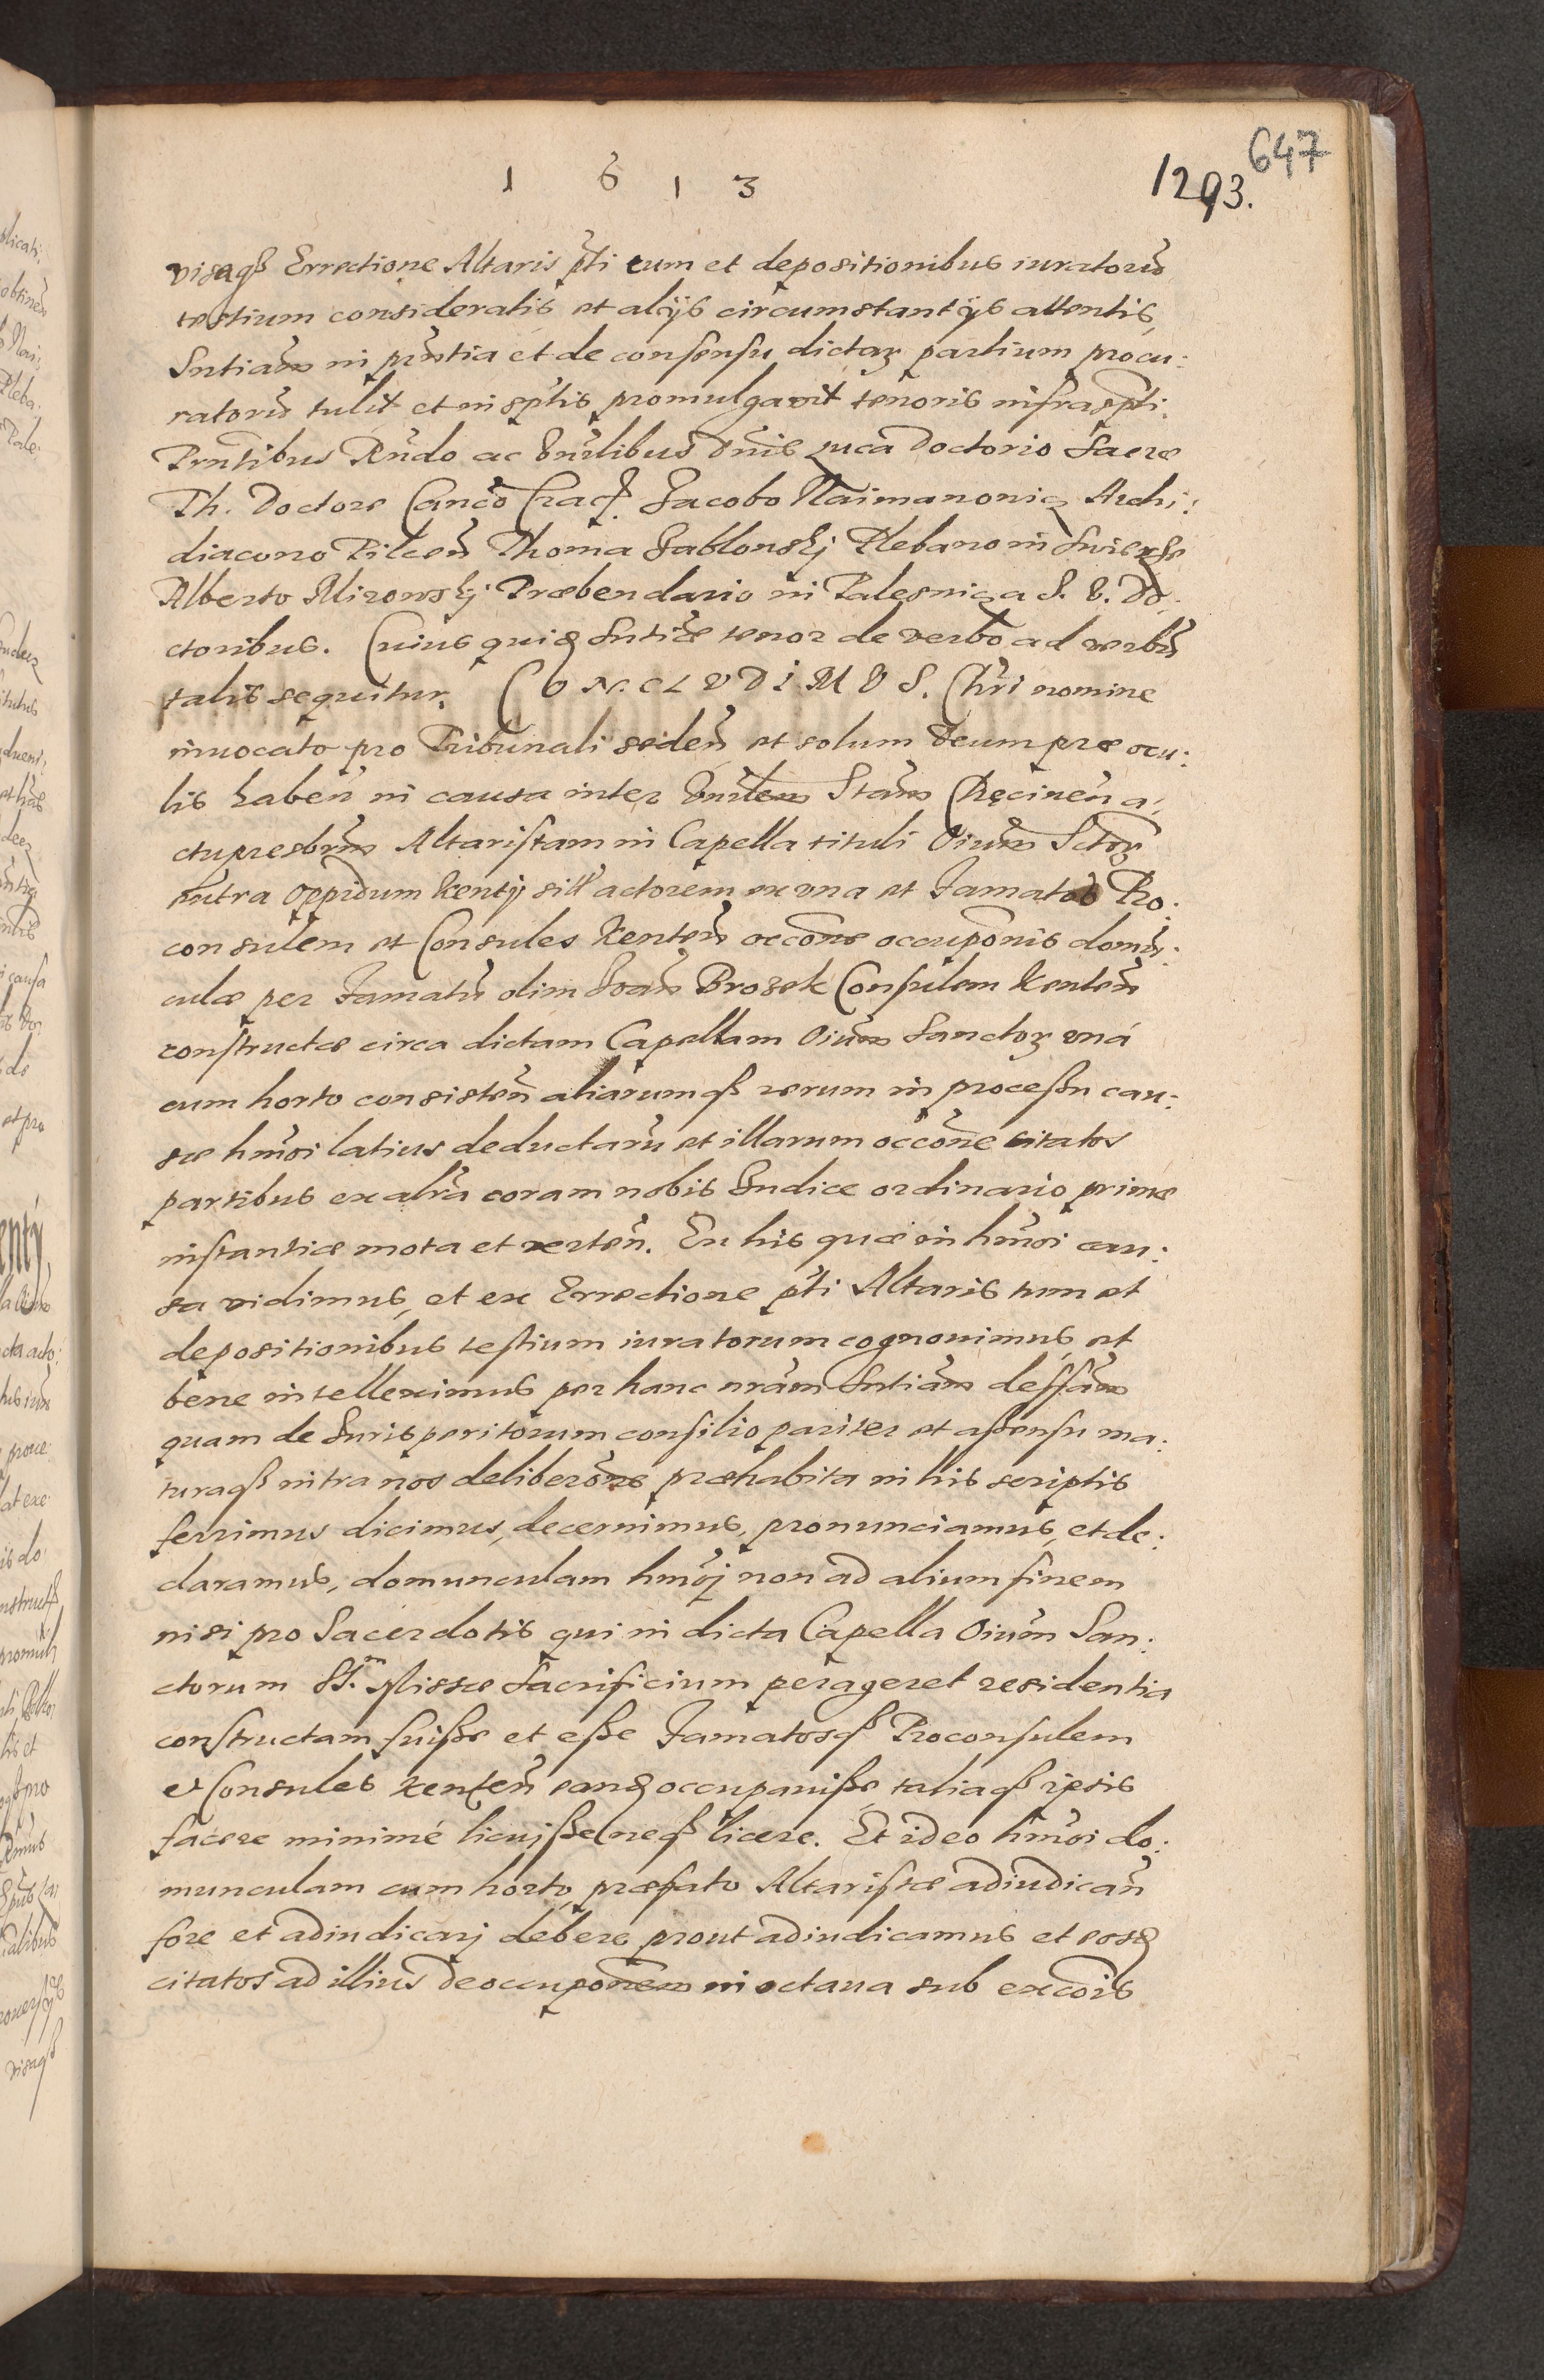 1 6 1 3
1293.
647
visaqß Errectione Altaris pti tum et depositionibus iuratorũ
testium consideratis et alijs circumstantijs attentis,
Sntiam in pñtia et de consensu dictaꝝ partium procu:
ratorũ tulit et in sptis promulgavit tenoris infraspti.
Prñtibus Rñdo ac Vñrlibus Dnis Luca Doctorio Sacræ
Th. Doctore Canco Crac̃. Jacobo Naimanonicz Archi:
diacono Pilceñ Thoma Jablonskj Plebano in
Alberto Mirowskj Præbendario in Palesnicza S. E. Dd.
ctoribus. Cuius quidẽ Sntiæ tenor de verbo ad verbũ
talis sequitur. CONCLVDIMVS. Chri nomine
inuocato pro Tribunali sedeñ et solum Deum præ ocu:
lis habeñ in causa inter Vñrlem Stam Kęcineñ a:
ctu presbrm Altaristam in Capella tituli Oium Sctoꝝ
extra Oppidum Kenty sitt̃ actorem ex una et Famatos Pro:
consulem et Consules Kenteñ occone occuponis domũ:
culæ per Famatũ olim Joañ Brozek Consulem Kenteñ
constructæ circa dictam Capellam Oium Sanctoꝝ unà
cum horto consisteñ aliarumqß rerum in processu cau:
sæ hmoi latius deductarũ et illarum occone citatos
partibus ex altra coram nobis Judice ordinario primæ
instantiæ mota et verteñ. Ex his quæ in hmoi cau:
sa vidimus, et ex Errectione pti Altaris tum et
depositionibus testium iuratorum cognouimus, et
bene intelleximus per hanc nram Sntiam deffam
quam de Jurisperitorum consilio pariter et assensu ma:
turaqß intra nos deliberone præhabita in his scriptis
ferrimus dicimus, decernimus, pronunciamus, et de:
claramus, domunculam hmoj non ad alium finem
nisi pro Sacerdotis qui in dicta Capella Oium San:
ctorum SS.m Missæ Sacrificium perageret residentia
constructam fuiße et eße Famatosqß Proconsulem
et Consules Kenteñ eandẽ occupauiße, taliaqß ipsis
facere minimé licuiße neqß licere. Et ideo hmoi do:
munculam cum horto præfato Altaristæ adiudicañ
fore et adiudicarj debere prout adiudicamus et eosdẽ
citatos ad illius deoccuponem in octaua sub excois